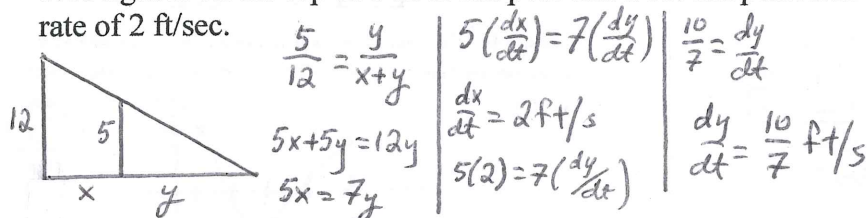 rate of 2 ft/sec.
12
5
x
y
5/12 = y/(x+y)
5x+5y=12y
5x=7y
5(dx/dt)=7(dy/dt)
dx/dt = 2ft/s
5(2)=7(dy/dt)
10/7 = dy/dt
dy/dt = 10/7 ft/s